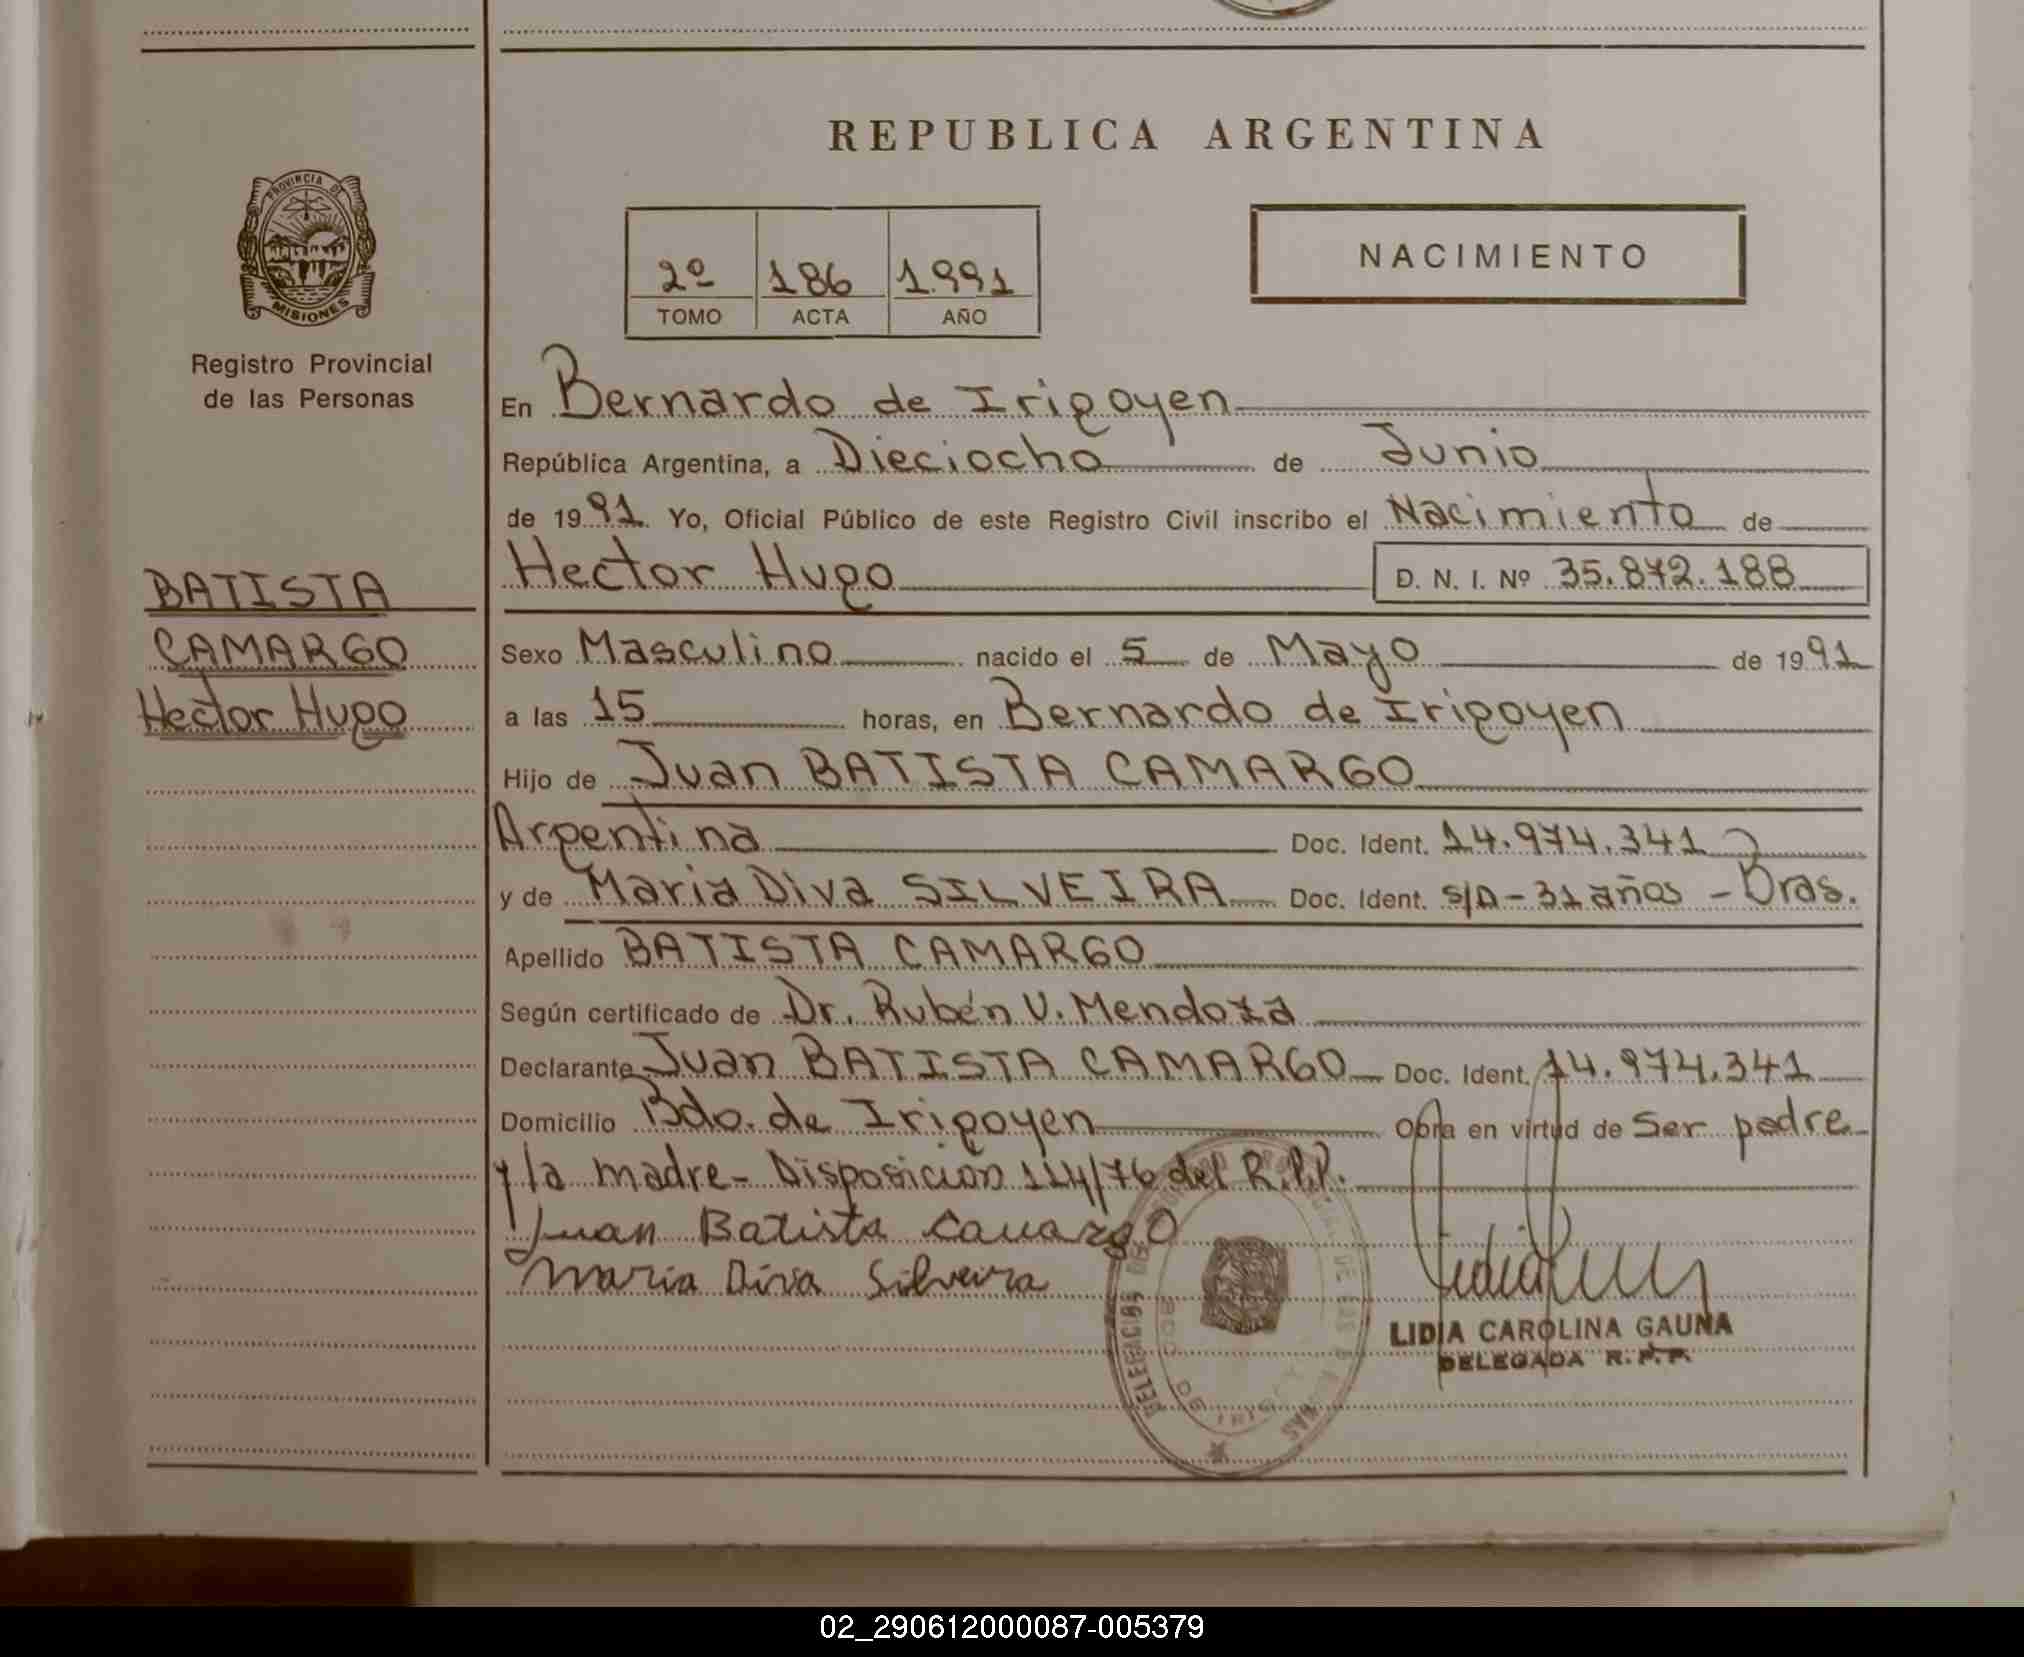 REPUBLICA ARGENTINA
PROVINCIA DE
MISIONES
Registro Provincial
de las Personas
2º 186 1.991
TOMO ACTA AÑO
NACIMIENTO
BATISTA
CAMARGO
Hector Hugo
En Bernardo de Irigoyen
República Argentina, a Dieciocho de Junio
de 1991. Yo, Oficial Público de este Registro Civil inscribo el Nacimiento de
Hector Hugo D. N. I. Nº 35.872.188
Sexo Masculino nacido el 5 de Mayo de 1991
a las 15 horas, en Bernardo de Irigoyen
Hijo de Juan BATISTA CAMARGO
Argentina Doc. Ident. 14.974.341
y de Maria Diva SILVEIRA Doc. Ident. s/D - 31 años - Bras.
Apellido BATISTA CAMARGO
Según certificado de Dr. Rubén V. Mendoza
Declarante Juan BATISTA CAMARGO Doc. Ident. 14.974.341
Domicilio Bdo. de Irigoyen Obra en virtud de Ser padre
y la madre - Disposicion 114/76 del R.P.P.
Juan Batista Camargo
Maria Diva Silveira
LIDIA CAROLINA GAUNA
DELEGADA R. P. P.
02_290612000087-005379